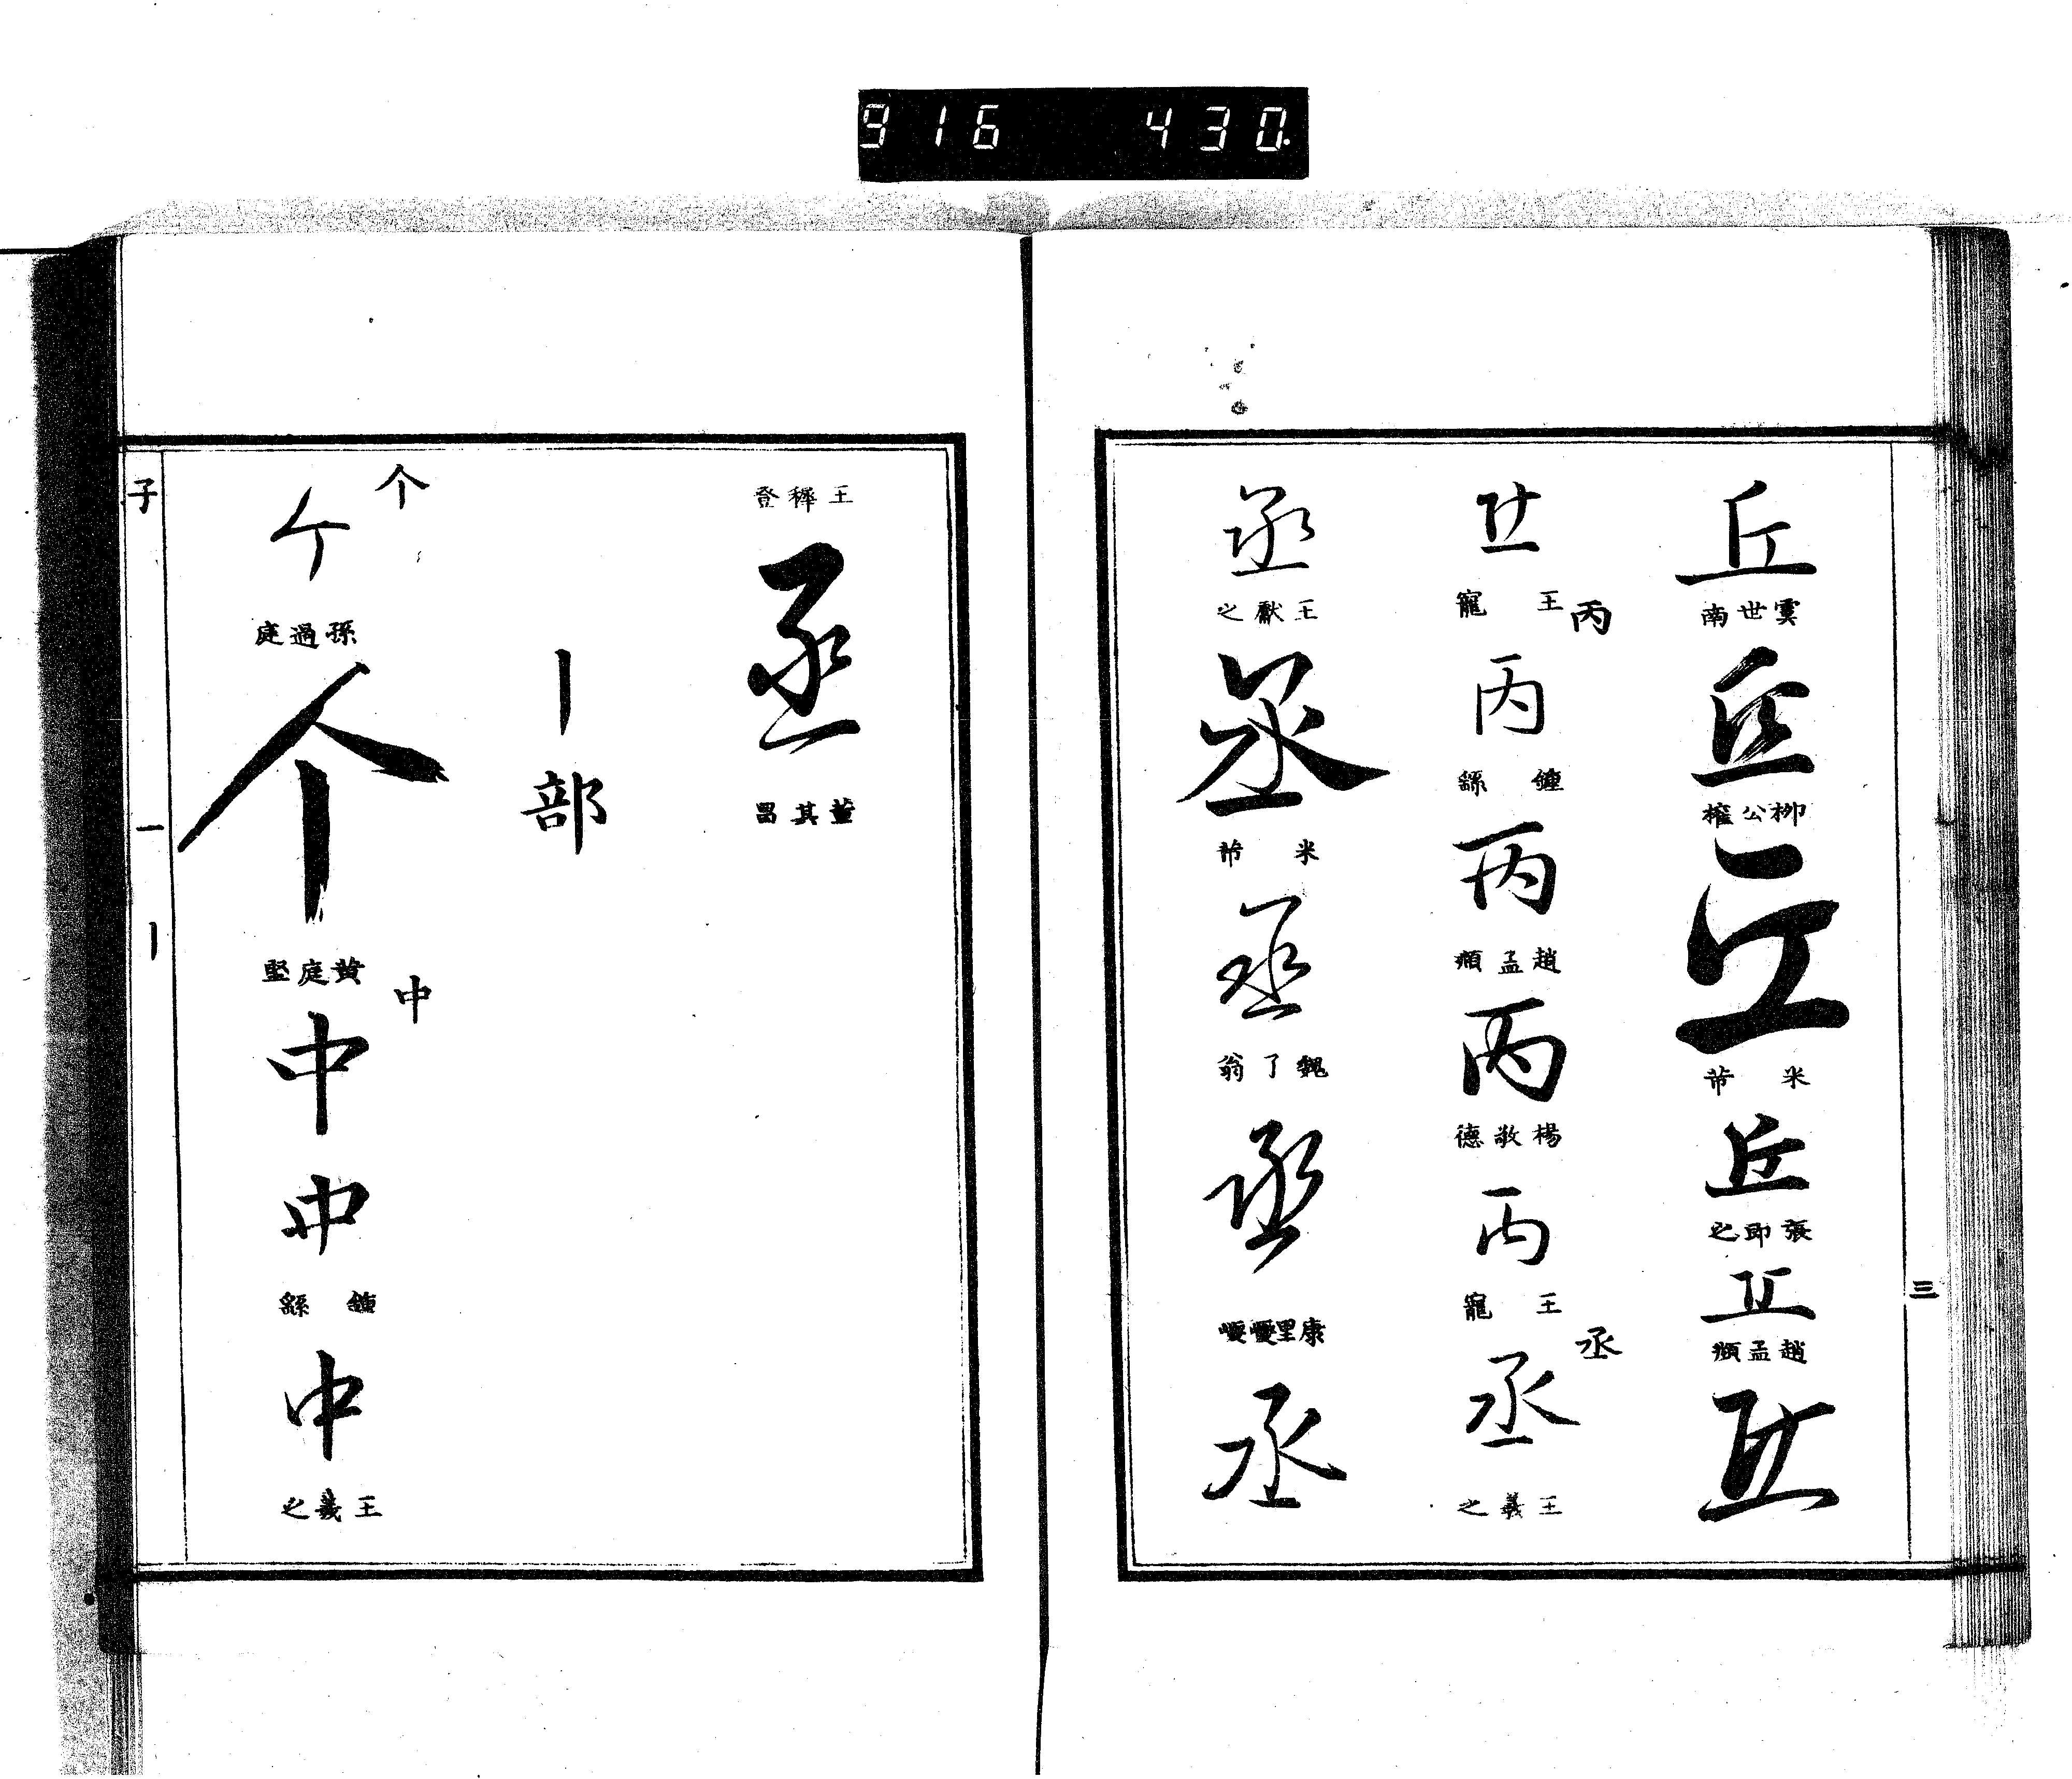 916 430.
三
丘
虞世南
丘
柳公權
丘
米芾
丘
張即之
丘
趙孟頫
丘
丘
王寵
丙
丙
鍾繇
丙
趙孟頫
丙
楊敬德
丙
王寵
丞
丞
王羲之
丞
王獻之
丞
米芾
丞
魏了翁
丞
康里巎巎
丞
王穉登
丞
董其昌
丨部
个
个
孫過庭
个
黃庭堅
中
中
中
鍾繇
中
王羲之
子 一 丨